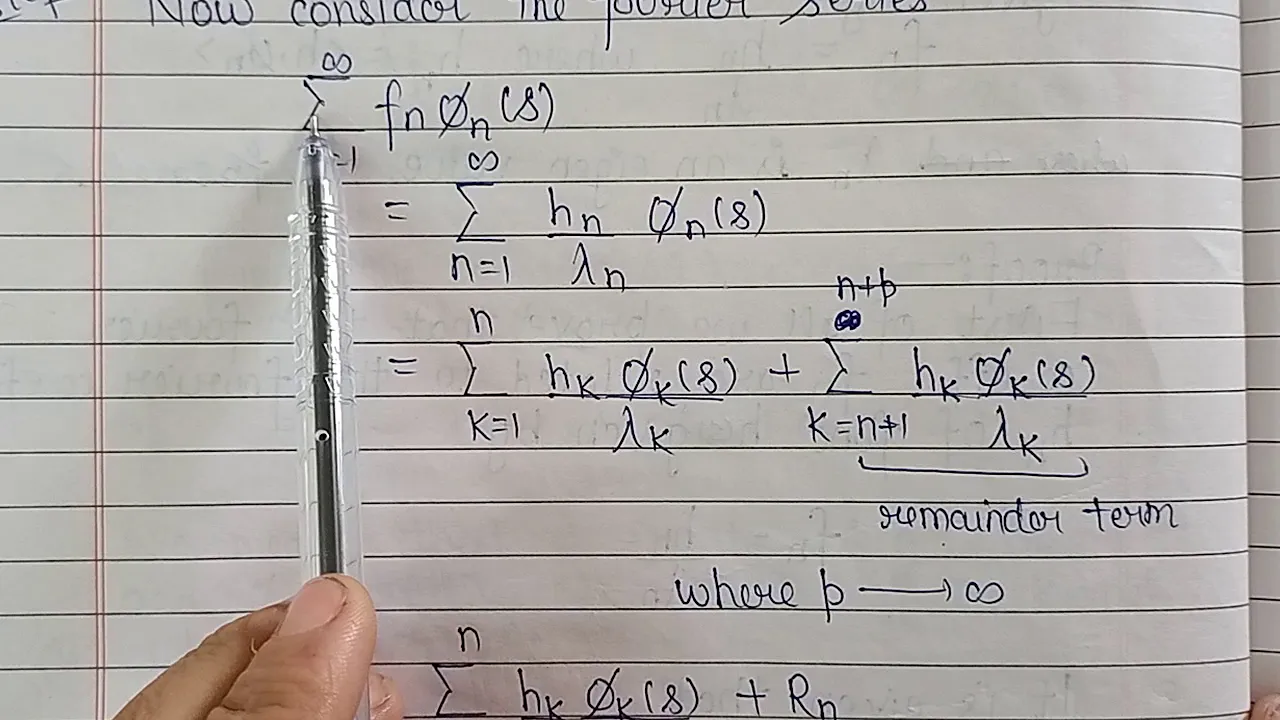 Now consider the fourier series
∞
∑ fn ϕn(s)
=1
= ∞∑n=1 hn/λn ϕn(s)
= n∑k=1 hk ϕk(s)/λk + n+p∑k=n+1 hk ϕk(s)/λk
remainder term
where p ⟶ ∞
n∑ hk ϕk(s) + Rn